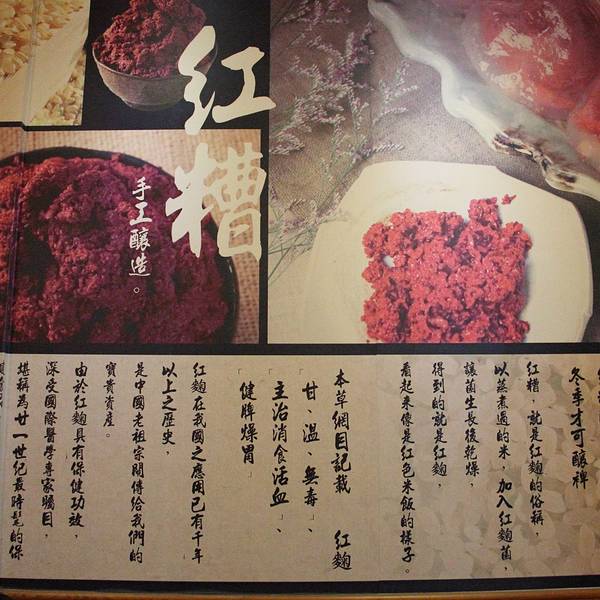 紅糟
手工釀造。
冬季才可釀
紅糟,就是紅麴的俗稱,
以蒸煮過的米,加入紅麴菌,
讓菌生長後乾燥,
得到的就是紅麴,
看起來像是紅色米飯的樣子。
本草網目記載 紅麴
「甘、溫、無毒」、
「主治消食活血」、
「健脾燥胃」
紅麴在我國之應用已有千年
以上之歷史,
是中國老祖宗傳給我們的
寶貴資產。
由於紅麴具有保健功效,
深受國際醫學專家矚目,
堪稱為廿一世紀最時髦的保